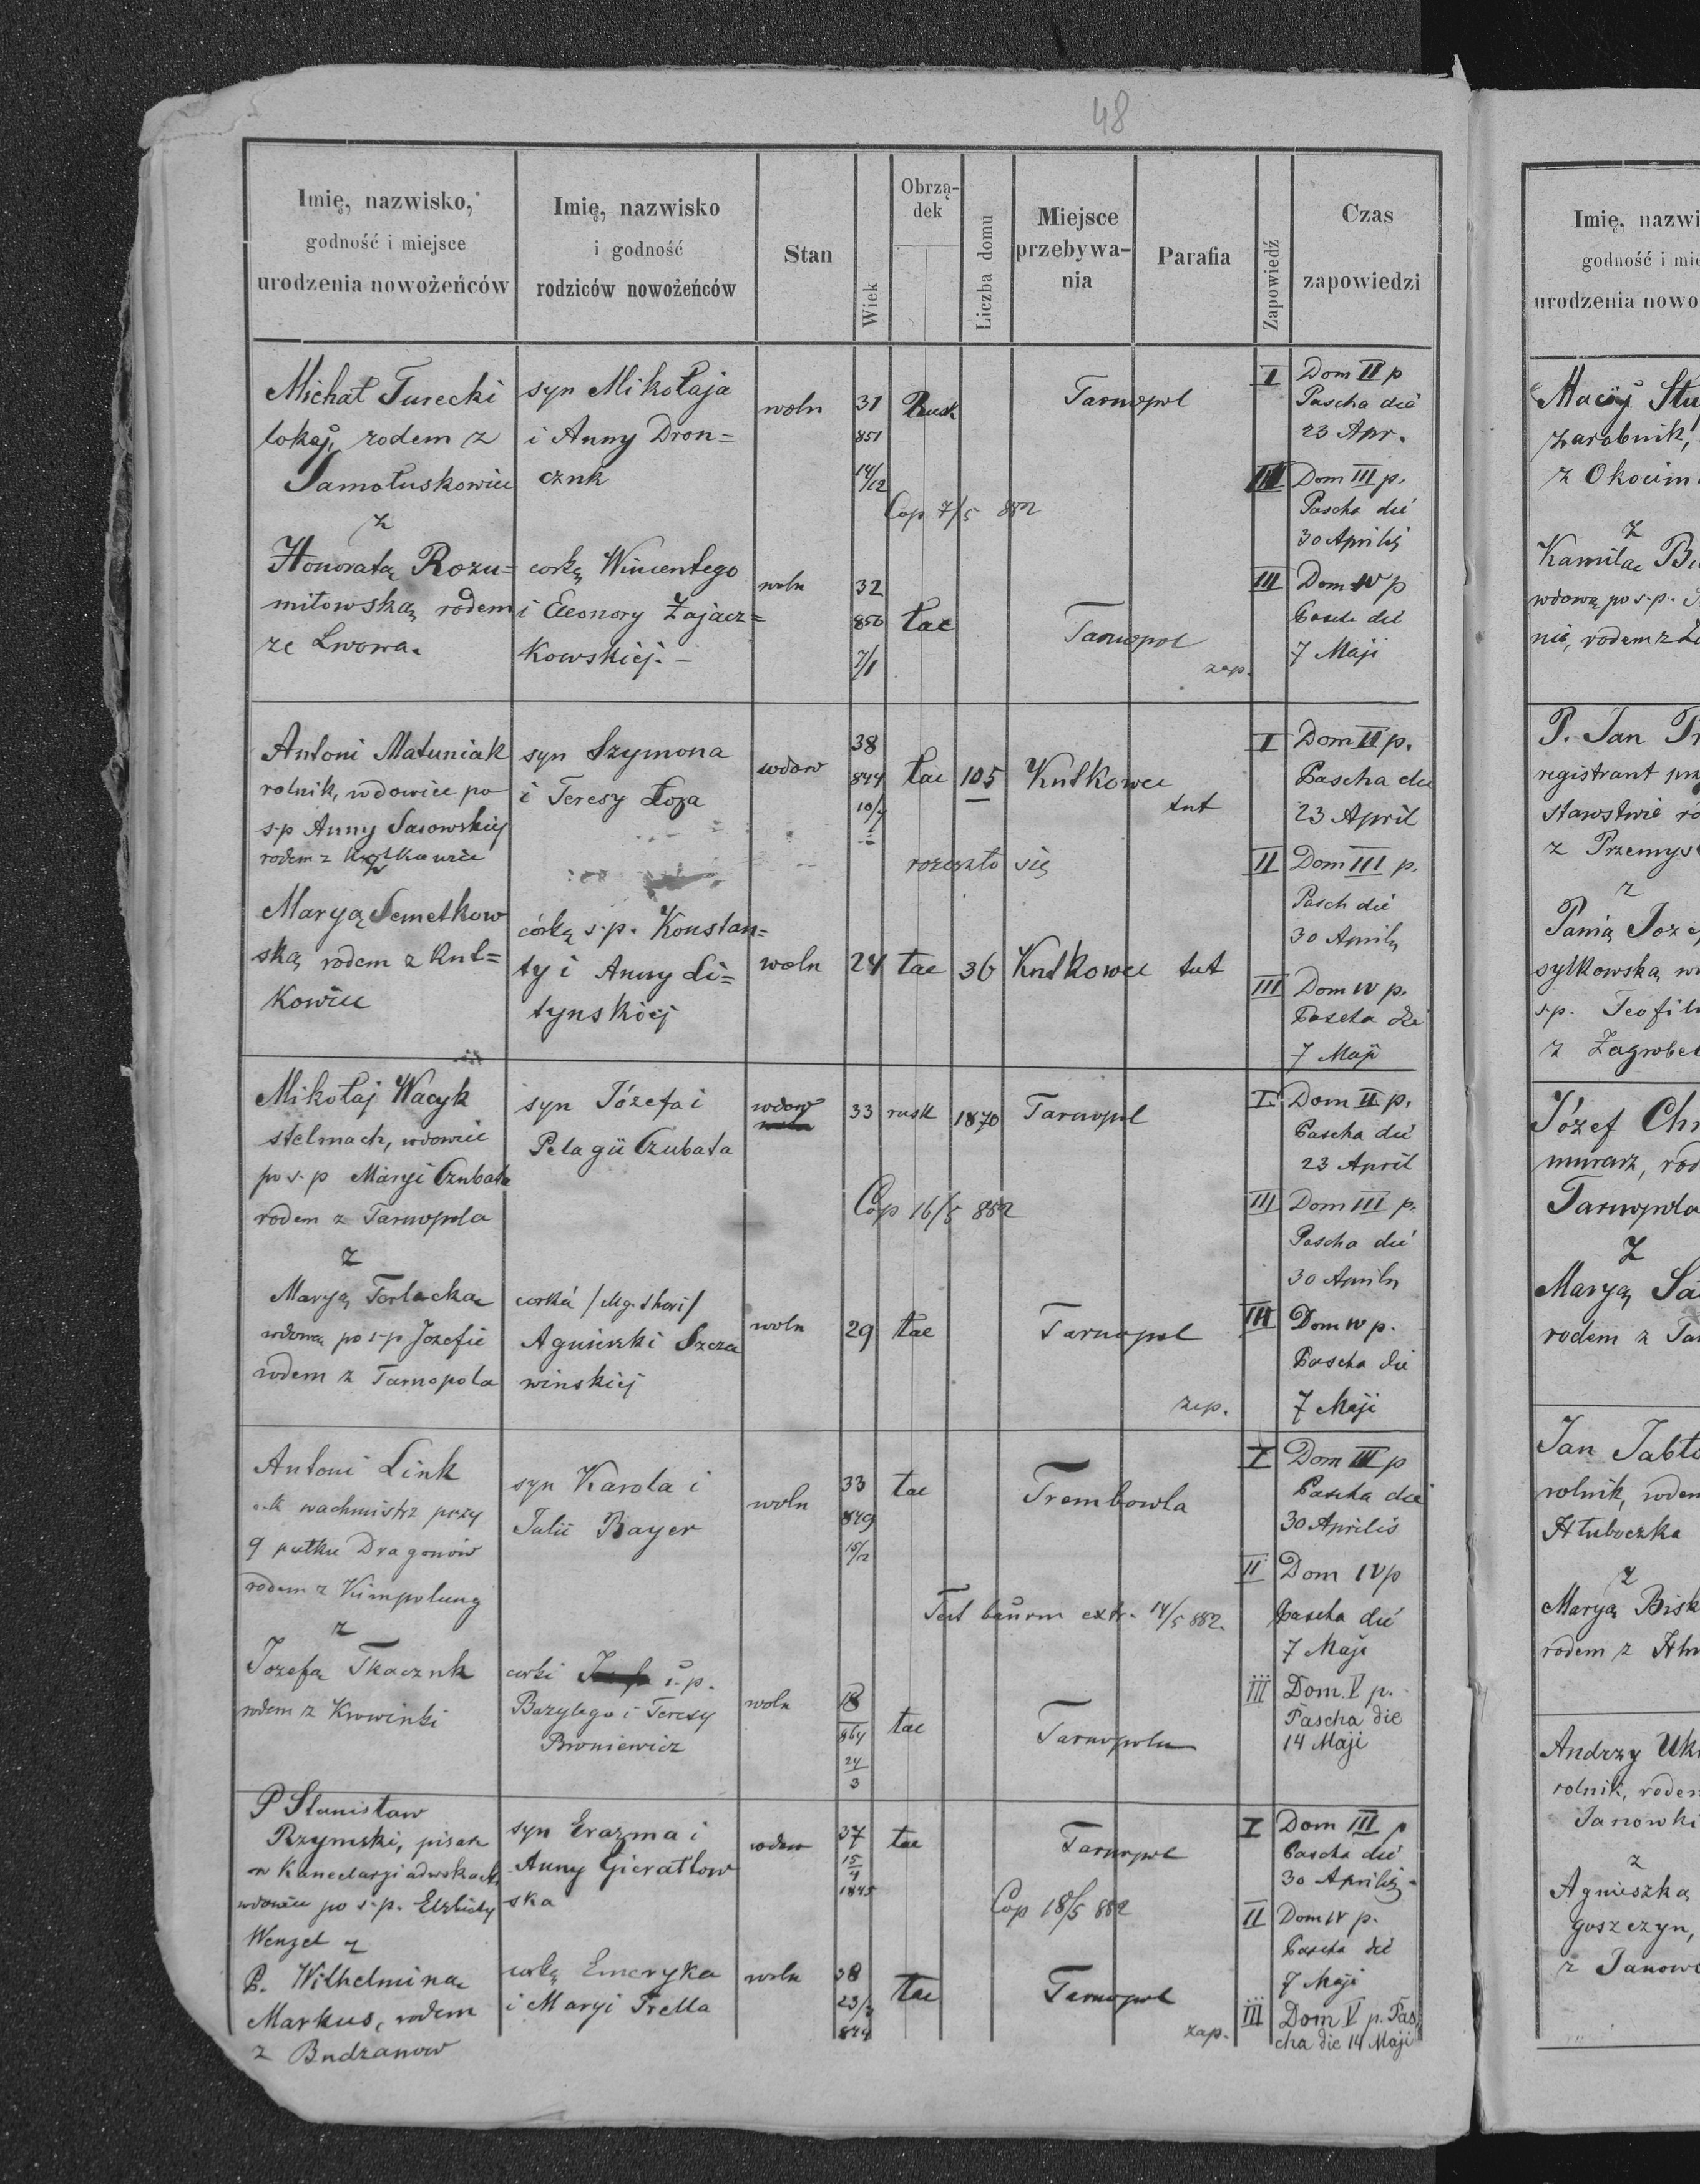 48
Imię, nazwisko,
godność i miejsce
urodzenia nowożeńców
Imię, nazwisko
i godność
rodziców nowożeńców
Stan
Wiek
Obrzą-
dek
Liczba domu
Miejsce
przebywa-
nia
Parafia
Zapowiedź
Czas
zapowiedzi
Michał Turecki
lokaj, rodem z
z
Honoratą Rozu=
miłowską rodem
ze Lwowa.
syn Mikołaja
i Anny Dron=
czuk
corką Wincentego
i Eleonory Zajacz=
kowskiej. –
woln
31
851
14/12
Rusk
Tarnopol
Cop 7/5 882
woln
32
850
7/1
łac
Tarnopol
zap.
I Dom II p
Pascha die
23 Apr.
III Dom III p.
Pascha die
30 Aprilis
III Dom IV p
Pascha die
7 Maji
Antoni Matuniak
rolnik, wdowiec po
s.p Anny Sasowskiej
rodem z
z
Maryą Semetkow
ską rodem z Kut=
kowiec
syn Szymona
i Teresy Łoza
córką s.p. Konstan=
ty i Anny Li=
tynskiej
wdow
38
844
10/7
łac
105
Kutkowce
tut
rozeszło się
woln
24
łac
36
Kutkowce
tut
I Dom II p.
Pascha die
23 April
II Dom III p.
Pasch die
30 Aprilis
III Dom IV p.
Pascha die
7 Maji
Mikołaj Wacyk
stelmach, wdowiec
po s.p Maryi Czubata
rodem z Tarnopola
z
Maryą
wdową po s.p Jozefie
rodem z Tarnopola
syn Józefa i
Pelagii Czubata
corką
Agnieszki Szcza
winskiej
wdow
33
rusk
1870
Tarnopol
Cop 16/5 882
woln
29
łac
Tarnopol
zap.
I Dom II p.
Pascha die
23 April
III Dom III p.
Pascha die
30 Aprilis
III Dom IV p.
Pascha die
7 Maji
Antoni Link
wachmistrz przy
9 pułku Dragonów
rodem z Kimpolung
z
Jozefą Tkaczuk
rodem z Krowinki
syn Karola i
Julii Bayer
corki s.p.
Bazylego i Teresy
Broniewicz
woln
33
849
15/12
łac
Trembowla
Test bannm extr. 14/5 882.
woln
18
864
24
3
łac
Tarnopolu
I Dom III p
Pascha die
30 Aprilis
II Dom IV p
Pascha die
7 Maji
III Dom. V p.
Pascha die
14 Maji
P Stanisław
Rzymski, pisarz
w Kancelaryi
wdowiec po s.p. Elzbiety
Wenzel z
P. Wilhelminą
Markus, rodem
z Budzanow
syn Erazma i
Anny Gierałtow
ska
corką Emeryka
i Maryi Trella
wdow
37
15
4
1845
łac
Tarnopol
Cop 18/5 882
woln
38
23/3
844
łac
Tarnopol
zap.
I Dom III p
Pascha die
30 Aprilis
II Dom IV p.
Pascha die
7 Maji
III Dom V p. Pas
cha die 14 Maji
Imię, nazwi
godność i mie
urodzenia nowo
Maciej Stu
zarobnik,
z Okocim
z
Kamila
wdową po s.p.
nie, rodem z
P. Jan
registrant prz
Starostwie ro
z Przemys
z
Panią Joze
syłkowska w
s.p. Teofil
z Zagrobel
Józef Chr
murarz, rod
Tarnopola
z
Maryą Sa
rodem z Tar
Jan Jabło
rolnik, rodem
Hłuboczka
z
Maryą Bisk
rodem z Hłu
Andrzy Uk
rolnik, rodem
Janowki
z
Agnieszką
goszczyn,
z Janow